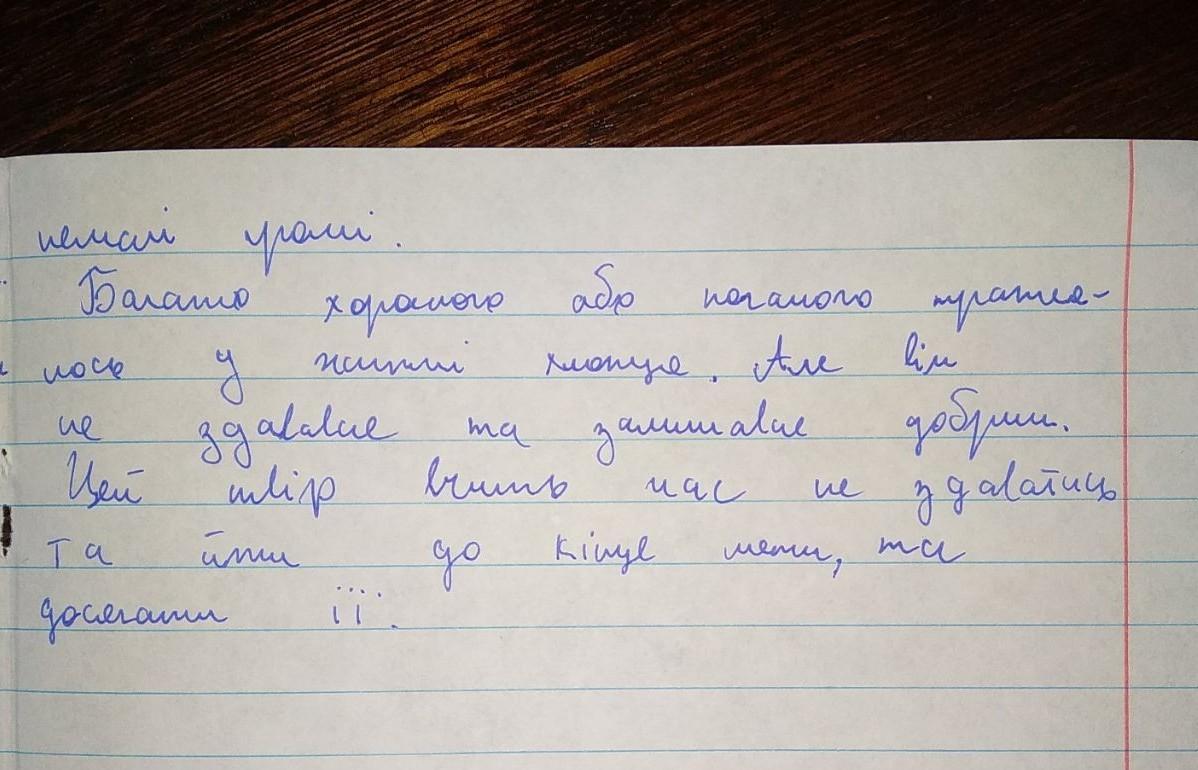 немалі гроші.
Багато хорошого або поганого трапля-
лось у житті хлопця. Але він
не здавався та залишався добрим.
Цей твір вчить нас не здаватись
та йти до кінця мети, та
досягати її.